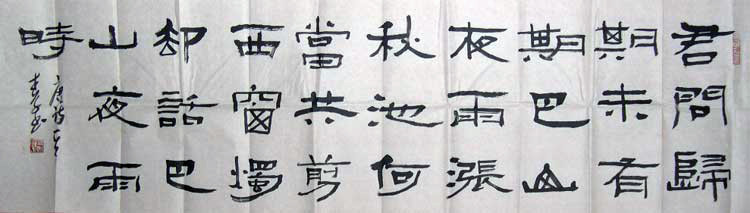 君問歸
期未有
期巴山
夜雨漲
秋池何
當共剪
西窗燭
却話巴
山夜雨
時
唐詩